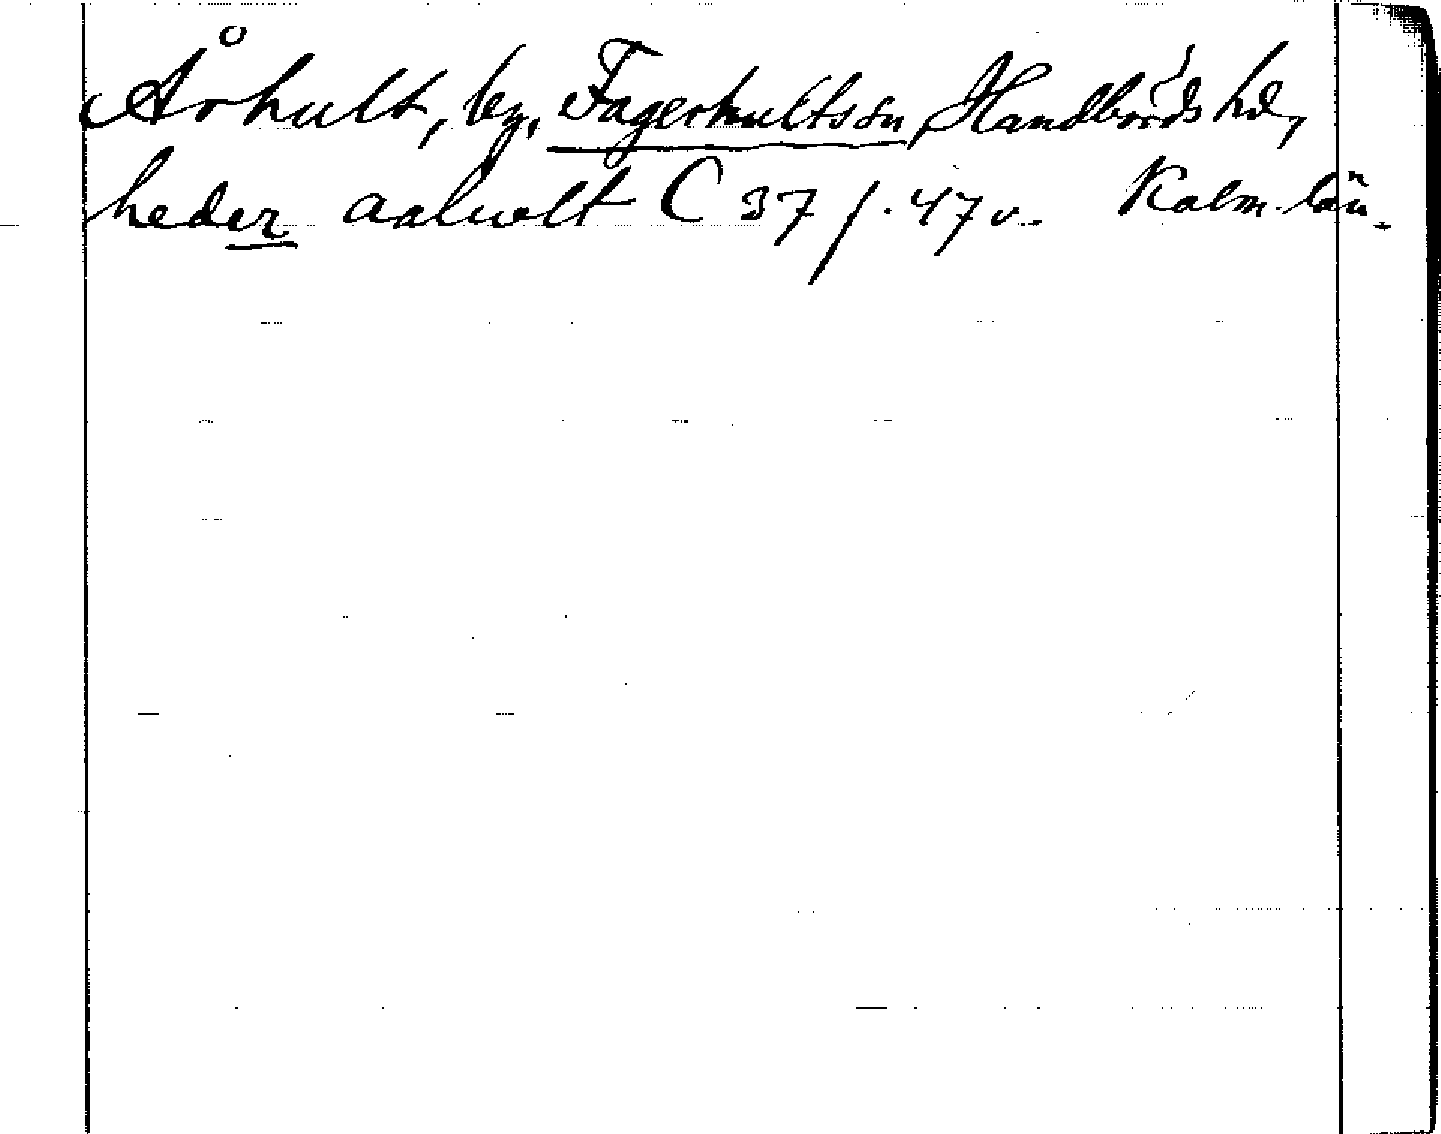 Århult, by, Fagerhults sn, Handbörds hd,
heder aalwlt C 37 f. 47 v. Kalm. län.